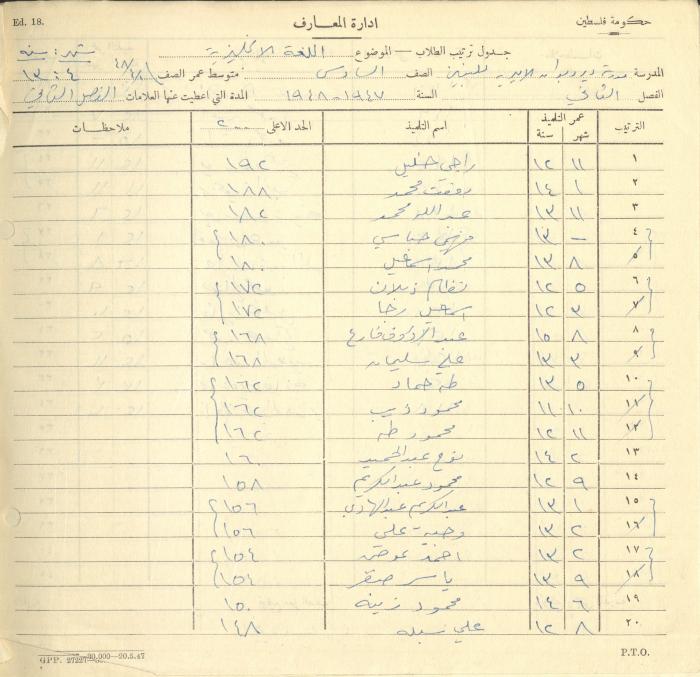 Ed. 18.
ادارة المعارف
حكومة فلسطين
جدول ترتيب الطلاب — الموضوع اللغة الانكليزية
شهر : سنة
المدرسة للبنين الصف السادس متوسط عمر الصف ٤ : ١٣
الفصل الثاني السنة ١٩٤٧ - ١٩٤٨ المدة التي اعطيت عنها العلامات الفصل الثاني
الترتيب عمر التلميذ شهر سنة اسم التلميذ الحد الاعلى ٢٠٠ ملاحظات
١ ١١ ١٢ راجي خليل ١٩٢
٢ ١ ١٤ رفعت محمد ١٨٨
٣ ١١ ١٣ عبد الله محمد ١٨٢
٤ — ١٣ ١٨٠
٥ ٨ ١٣ محمد اسماعيل ١٨٠
٦ ٥ ١٢ نظام ١٧٢
٧ ٣ ١٢ اسماعيل رجا ١٧٢
٨ ٨ ١٥ عبد الرؤوف فارع ١٦٨
٩ ٣ ١٣ سليمان ١٦٨
١٠ ٥ ١٣ طه حماد ١٦٢
١١ ١٠ ١١ محمود ذيب ١٦٢
١٢ ١١ ١٢ محمود طه ١٦٢
١٣ ٢ ١٤ نوح عبد الحميد ١٦٠
١٤ ٩ ١٢ محمود عبد الكريم ١٥٨
١٥ ١ ١٣ عبد الكريم عبد الهادي ١٥٦
١٦ ٢ ١٣ علي ١٥٦
١٧ ٢ ١٣ احمد عوض ١٥٤
١٨ ٩ ١٣ ياسر صقر ١٥٤
١٩ ٦ ١٤ محمود زينه ١٥٠
٢٠ ٨ ١٢ علي ١٤٨
30.000—20.5.47
P.T.O.